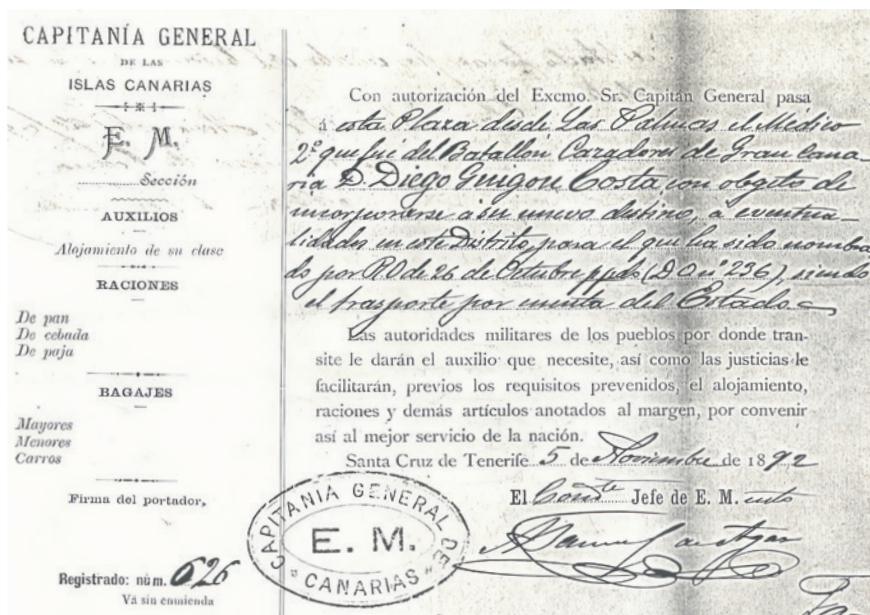 CAPITANÍA GENERAL
DE LAS
ISLAS CANARIAS
E. M.
Sección
AUXILIOS
Alojamiento de su clase
RACIONES
De pan
De cebada
De paja
BAGAJES
Mayores
Menores
Carros
Firma del portador,
Registrado: núm. 626
Vá sin enmienda
Con autorización del Excmo. Sr. Capitán General pasa
á esta Plaza desde Las Palmas el Médico
2º que fué del Batallón Cazadores de Gran Cana-
ria D. Diego Guigou Costa con objeto de
incorporarse á su nuevo destino, á eventua-
lidades en este Distrito, para el que ha sido nombra
do por R.O de 26 de Octubre ppdo (D.O nº 236), siendo
el trasporte por cuenta del Estado.
Las autoridades militares de los pueblos por donde tran-
site le darán el auxilio que necesite, así como las justicias le
facilitarán, previos los requisitos prevenidos, el alojamiento,
raciones y demás artículos anotados al margen, por convenir
así al mejor servicio de la nación.
Santa Cruz de Tenerife 5 de Noviembre de 1892
El Comte Jefe de E. M.
CAPITANIA GENERAL DE
E. M.
CANARIAS